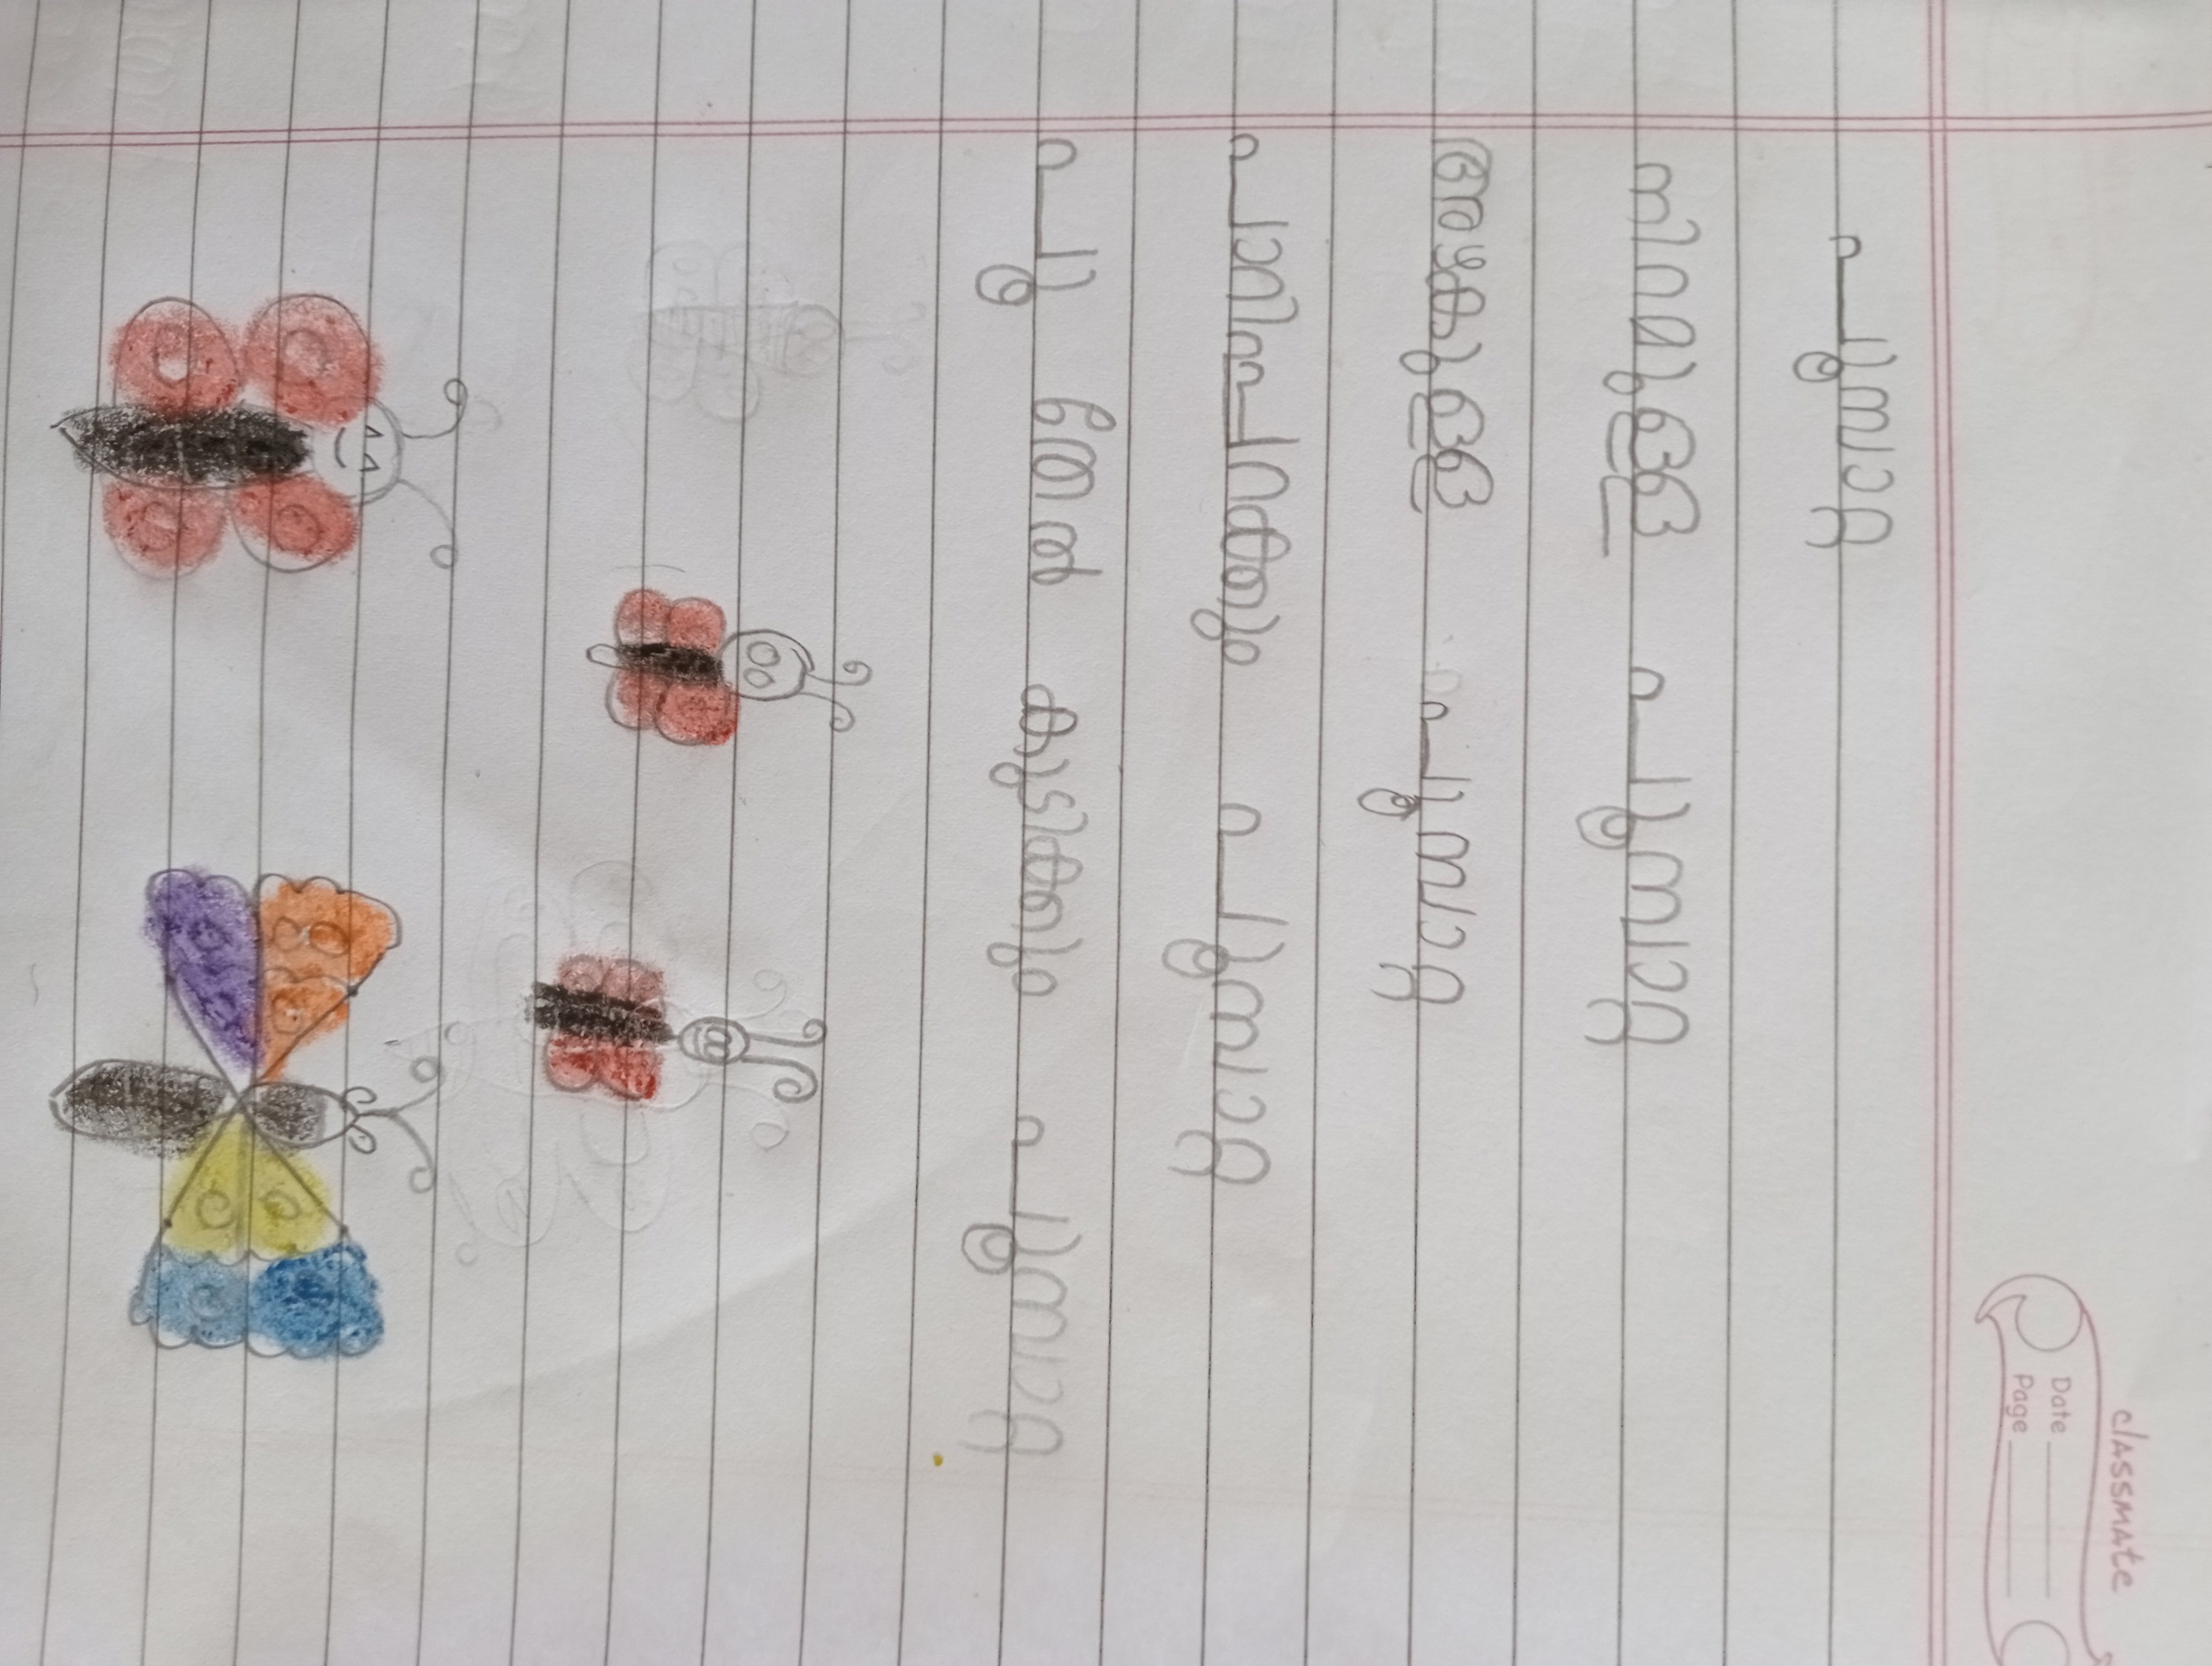 classmate
Date
Page
പൂമ്പാറ്റ
നിറമുള്ള പൂമ്പാറ്റ
അഴകുള്ള പൂമ്പാറ്റ
പാറിപ്പറക്കും പൂമ്പാറ്റ
പൂ തേൻ കുടിക്കും പൂമ്പാറ്റ